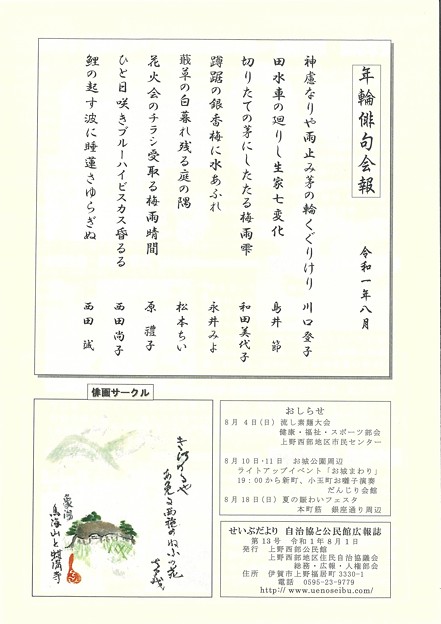 年輪俳句会報
令和一年八月
神慮なりや雨止み茅の輪くぐりけり 川口登子
田水車の廻りし生家七変化 島井 節
切りたての茅にしたたる梅雨雫 和田美代子
蹲踞の銀香梅に水あふれ 永井みよ
蕺草の白暮れ残る庭の隅 松本ちい
花火会のチラシ受取る梅雨晴間 原 禮子
ひと日咲きブルーハイビスカス昏るる 西田尚子
鯉の起す波に睡蓮さゆらぎぬ 西田 誠
俳画サークル
象潟や
鳥海山と蚶満寺
おしらせ
8月 4日(日) 流し素麺大会
健康・福祉・スポーツ部会
上野西部地区市民センター
8月10日・11日 お城公園周辺
ライトアップイベント「お城まわり」
19:00から新町、小玉町お囃子演奏
だんじり会館
8月18日(日) 夏の賑わいフェスタ
本町筋 銀座通り周辺
せいぶだより 自治協と公民館広報誌
第13号 令和1年8月1日
発行 上野西部公民館
上野西部地区住民自治協議会
総務・広報・人権部会
住所 伊賀市上野福居町3330-1
電話 0595-23-9779
http://www.uenoseibu.com/